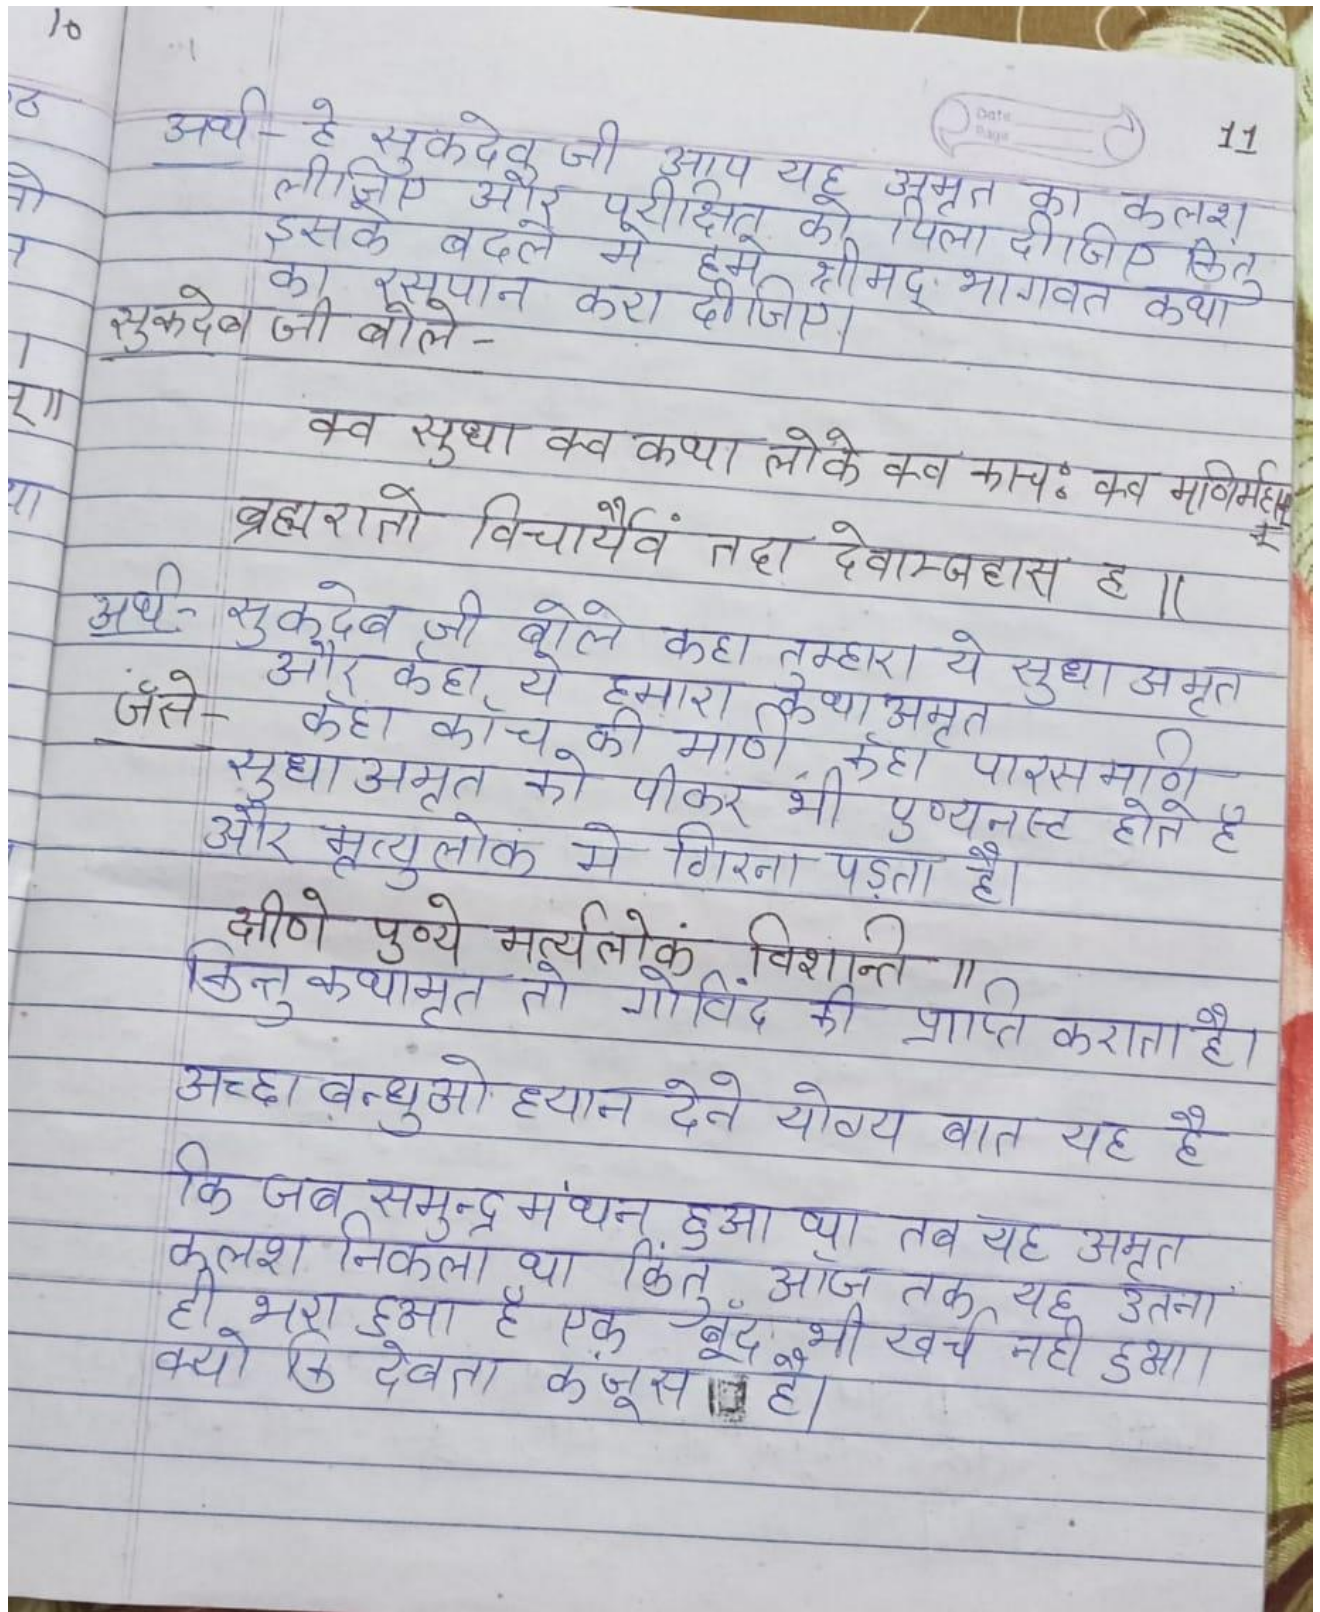 10
Date
Page
11
अर्थ - हे सुकदेव जी आप यह अमृत का कलश
लीजिए और परीक्षित को पिला दीजिए किंतु
इसके बदले मे हमे श्रीमद् भागवत कथा
का रसपान करा दीजिए।
सुकदेब जी बोले -
क्व सुधा क्व कथा लोके क्व काचः क्व मणिर्महान्
ब्रह्मरातो विचार्यैवं तदा देवाम्जहास ह ॥
अर्थ- सुकदेब जी बोले कहा तुम्हारा ये सुधा अमृत
और कहा ये हमारा कथा अमृत
जैसे - कहा काँच की मणि कहा पारस मणि
सुधा अमृत को पीकर भी पुण्यनस्ट होते है
और मृत्युलोक मे गिरना पड़ता है।
क्षीणे पुण्ये मर्त्यलोकं विशान्ति ॥
किन्तु कथामृत तो गोविंद की प्राप्ति कराता है।
अच्छा बन्धुओ ध्यान देने योग्य बात यह है
कि जब समुन्द्र मंथन हुआ था तब यह अमृत
कलश निकला था किंतु आज तक यह उतना
ही भरा हुआ है एक बूँद भी खर्च नही हुआ।
क्यो कि देवता कंजूस है।